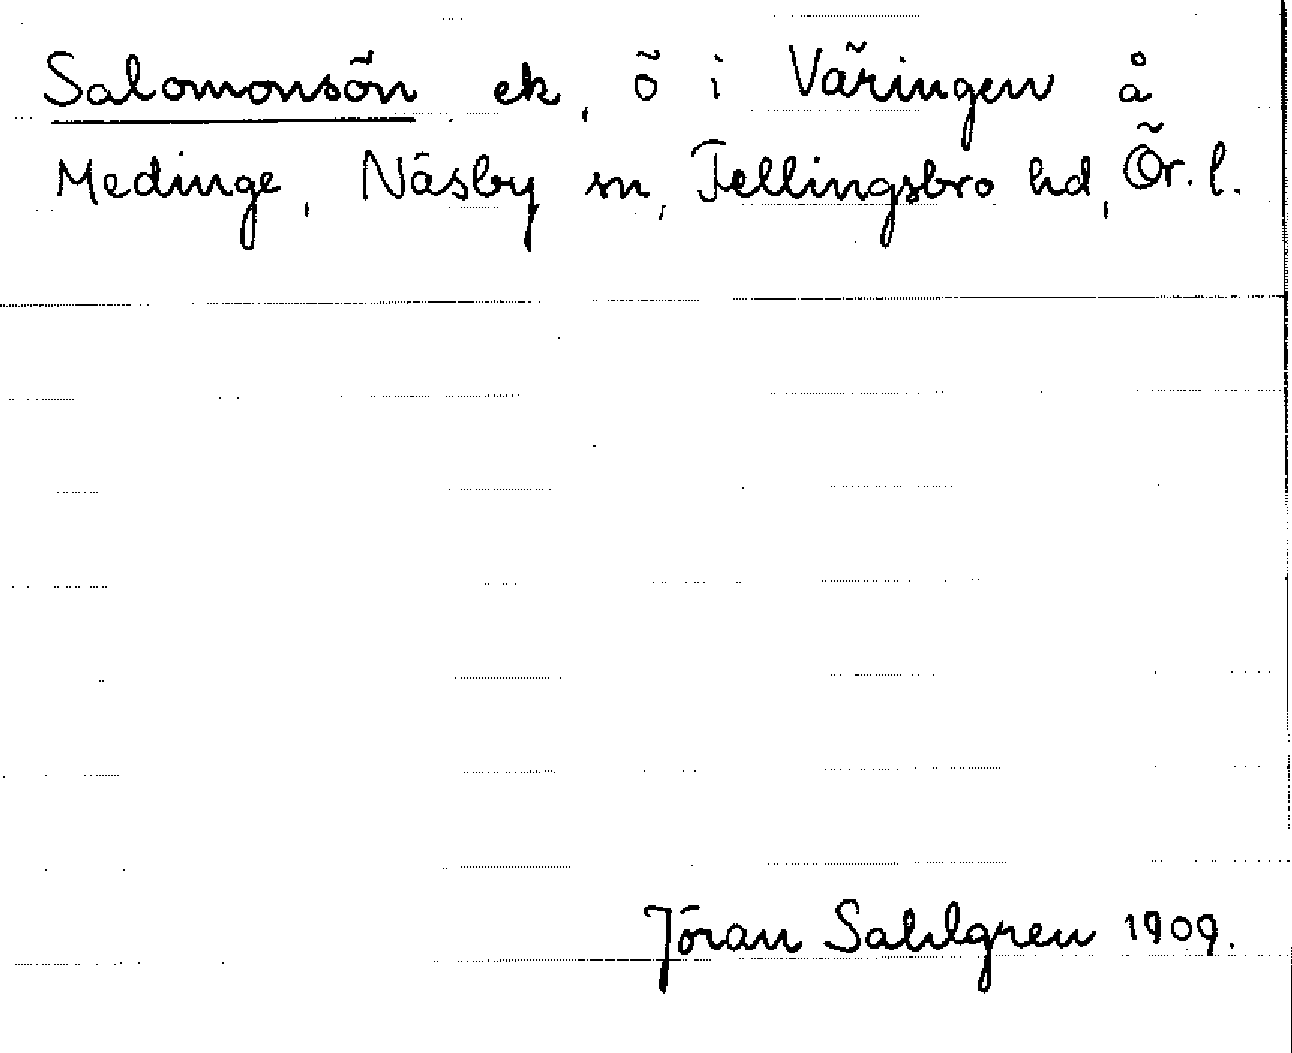 Salomonsön ek, ö i Väringen å
Medinge, Näsby sn, Fellingsbro hd, Ör. l.
Jöran Sahlgren 1909.